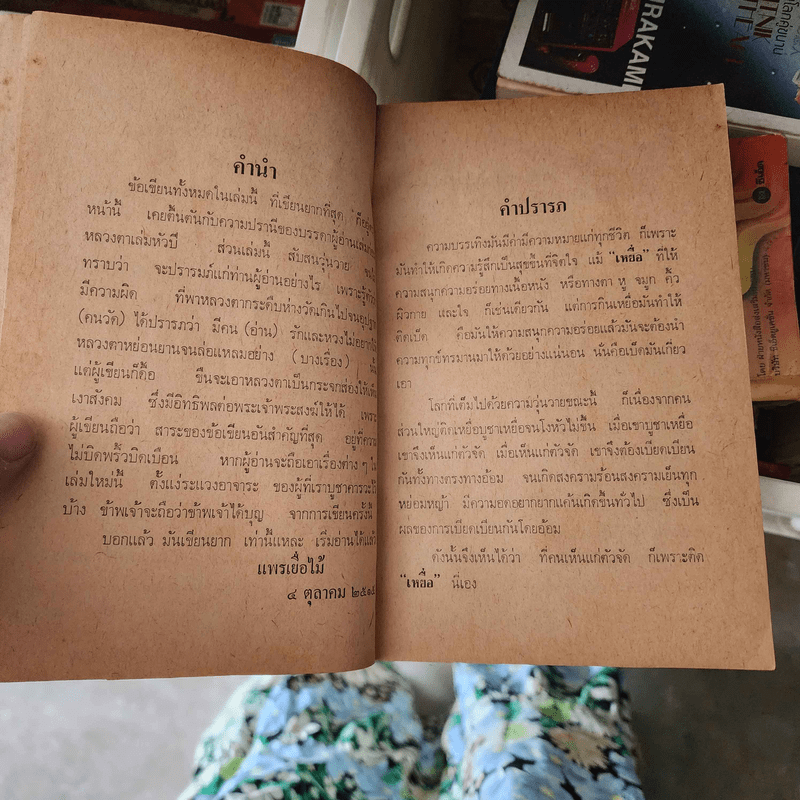 คำนำ
ข้อเขียนทั้งหมดในเล่มนี้ ที่เขียนยากที่สุด
หน้านี้ เคยตื้นตันกับความปรานีของบรรดาผู้อ่าน
หลวงตาเล่มหัวปี ส่วนเล่มนี้ สับสนวุ่นวาย
ทราบว่า จะปรารมภ์แก่ท่านผู้อ่านอย่างไร เพราะรู้ตัว
มีความผิด ที่พาหลวงตากระดืบห่างวัดเกินไปจน
(คนวัด) ได้ปรารภว่า มีคน (อ่าน) รักและหวงไม่อยาก
หลวงตาหย่อนยานจนล่อแหลมอย่าง (บางเรื่อง)
แต่ผู้เขียนก็ดื้อ ขืนจะเอาหลวงตาเป็นกระจกส่องให้
เงาสังคม ซึ่งมีอิทธิพลต่อพระเจ้าพระสงฆ์ให้ได้ เพราะ
ผู้เขียนถือว่า สาระของข้อเขียนอันสำคัญที่สุด อยู่ที่ความ
ไม่บิดพริ้วบิดเบือน หากผู้อ่านจะถือเอาเรื่องต่าง ๆ ใน
เล่มใหม่นี้ ตั้งแง่ระแวงอาจาระ ของผู้ที่เราบูชาคารวะไว้
บ้าง ข้าพเจ้าจะถือว่าข้าพเจ้าได้บุญ จากการเขียนครั้งนี้
บอกแล้ว มันเขียนยาก เท่านี้แหละ เริ่มอ่านได้แล้ว
แพรเยื่อไม้
๔ ตุลาคม
คำปรารภ
ความบรรเทิงมันมีค่ามีความหมายแก่ทุกชีวิต ก็เพราะ
มันทำให้เกิดความรู้สึกเป็นสุขขึ้นที่จิตใจ แม้ “เหยื่อ” ที่ให้
ความสนุกความอร่อยทางเนื้อหนัง หรือทางตา หู จมูก คิ้ว
ผิวกาย และใจ ก็เช่นเดียวกัน แต่การกินเหยื่อมันทำให้
ติดเบ็ด คือมันให้ความสนุกความอร่อยแล้วมันจะต้องนำ
ความทุกข์ทรมานมาให้ด้วยอย่างแน่นอน นั่นคือเบ็ดมันเกี่ยว
เอา
โลกที่เต็มไปด้วยความวุ่นวายขณะนี้ ก็เนื่องจากคน
ส่วนใหญ่ติดเหยื่อบูชาเหยื่อจนโงหัวไม่ขึ้น เมื่อเขาบูชาเหยื่อ
เขาจึงเห็นแก่ตัวจัด เมื่อเห็นแก่ตัวจัด เขาจึงต้องเบียดเบียน
กันทั้งทางตรงทางอ้อม จนเกิดสงครามร้อนสงครามเย็นทุก
หย่อมหญ้า มีความอดอยากยากแค้นเกิดขึ้นทั่วไป ซึ่งเป็น
ผลของการเบียดเบียนกันโดยอ้อม
ดังนั้นจึงเห็นได้ว่า ที่คนเห็นแก่ตัวจัด ก็เพราะติด
“เหยื่อ” นี่เอง